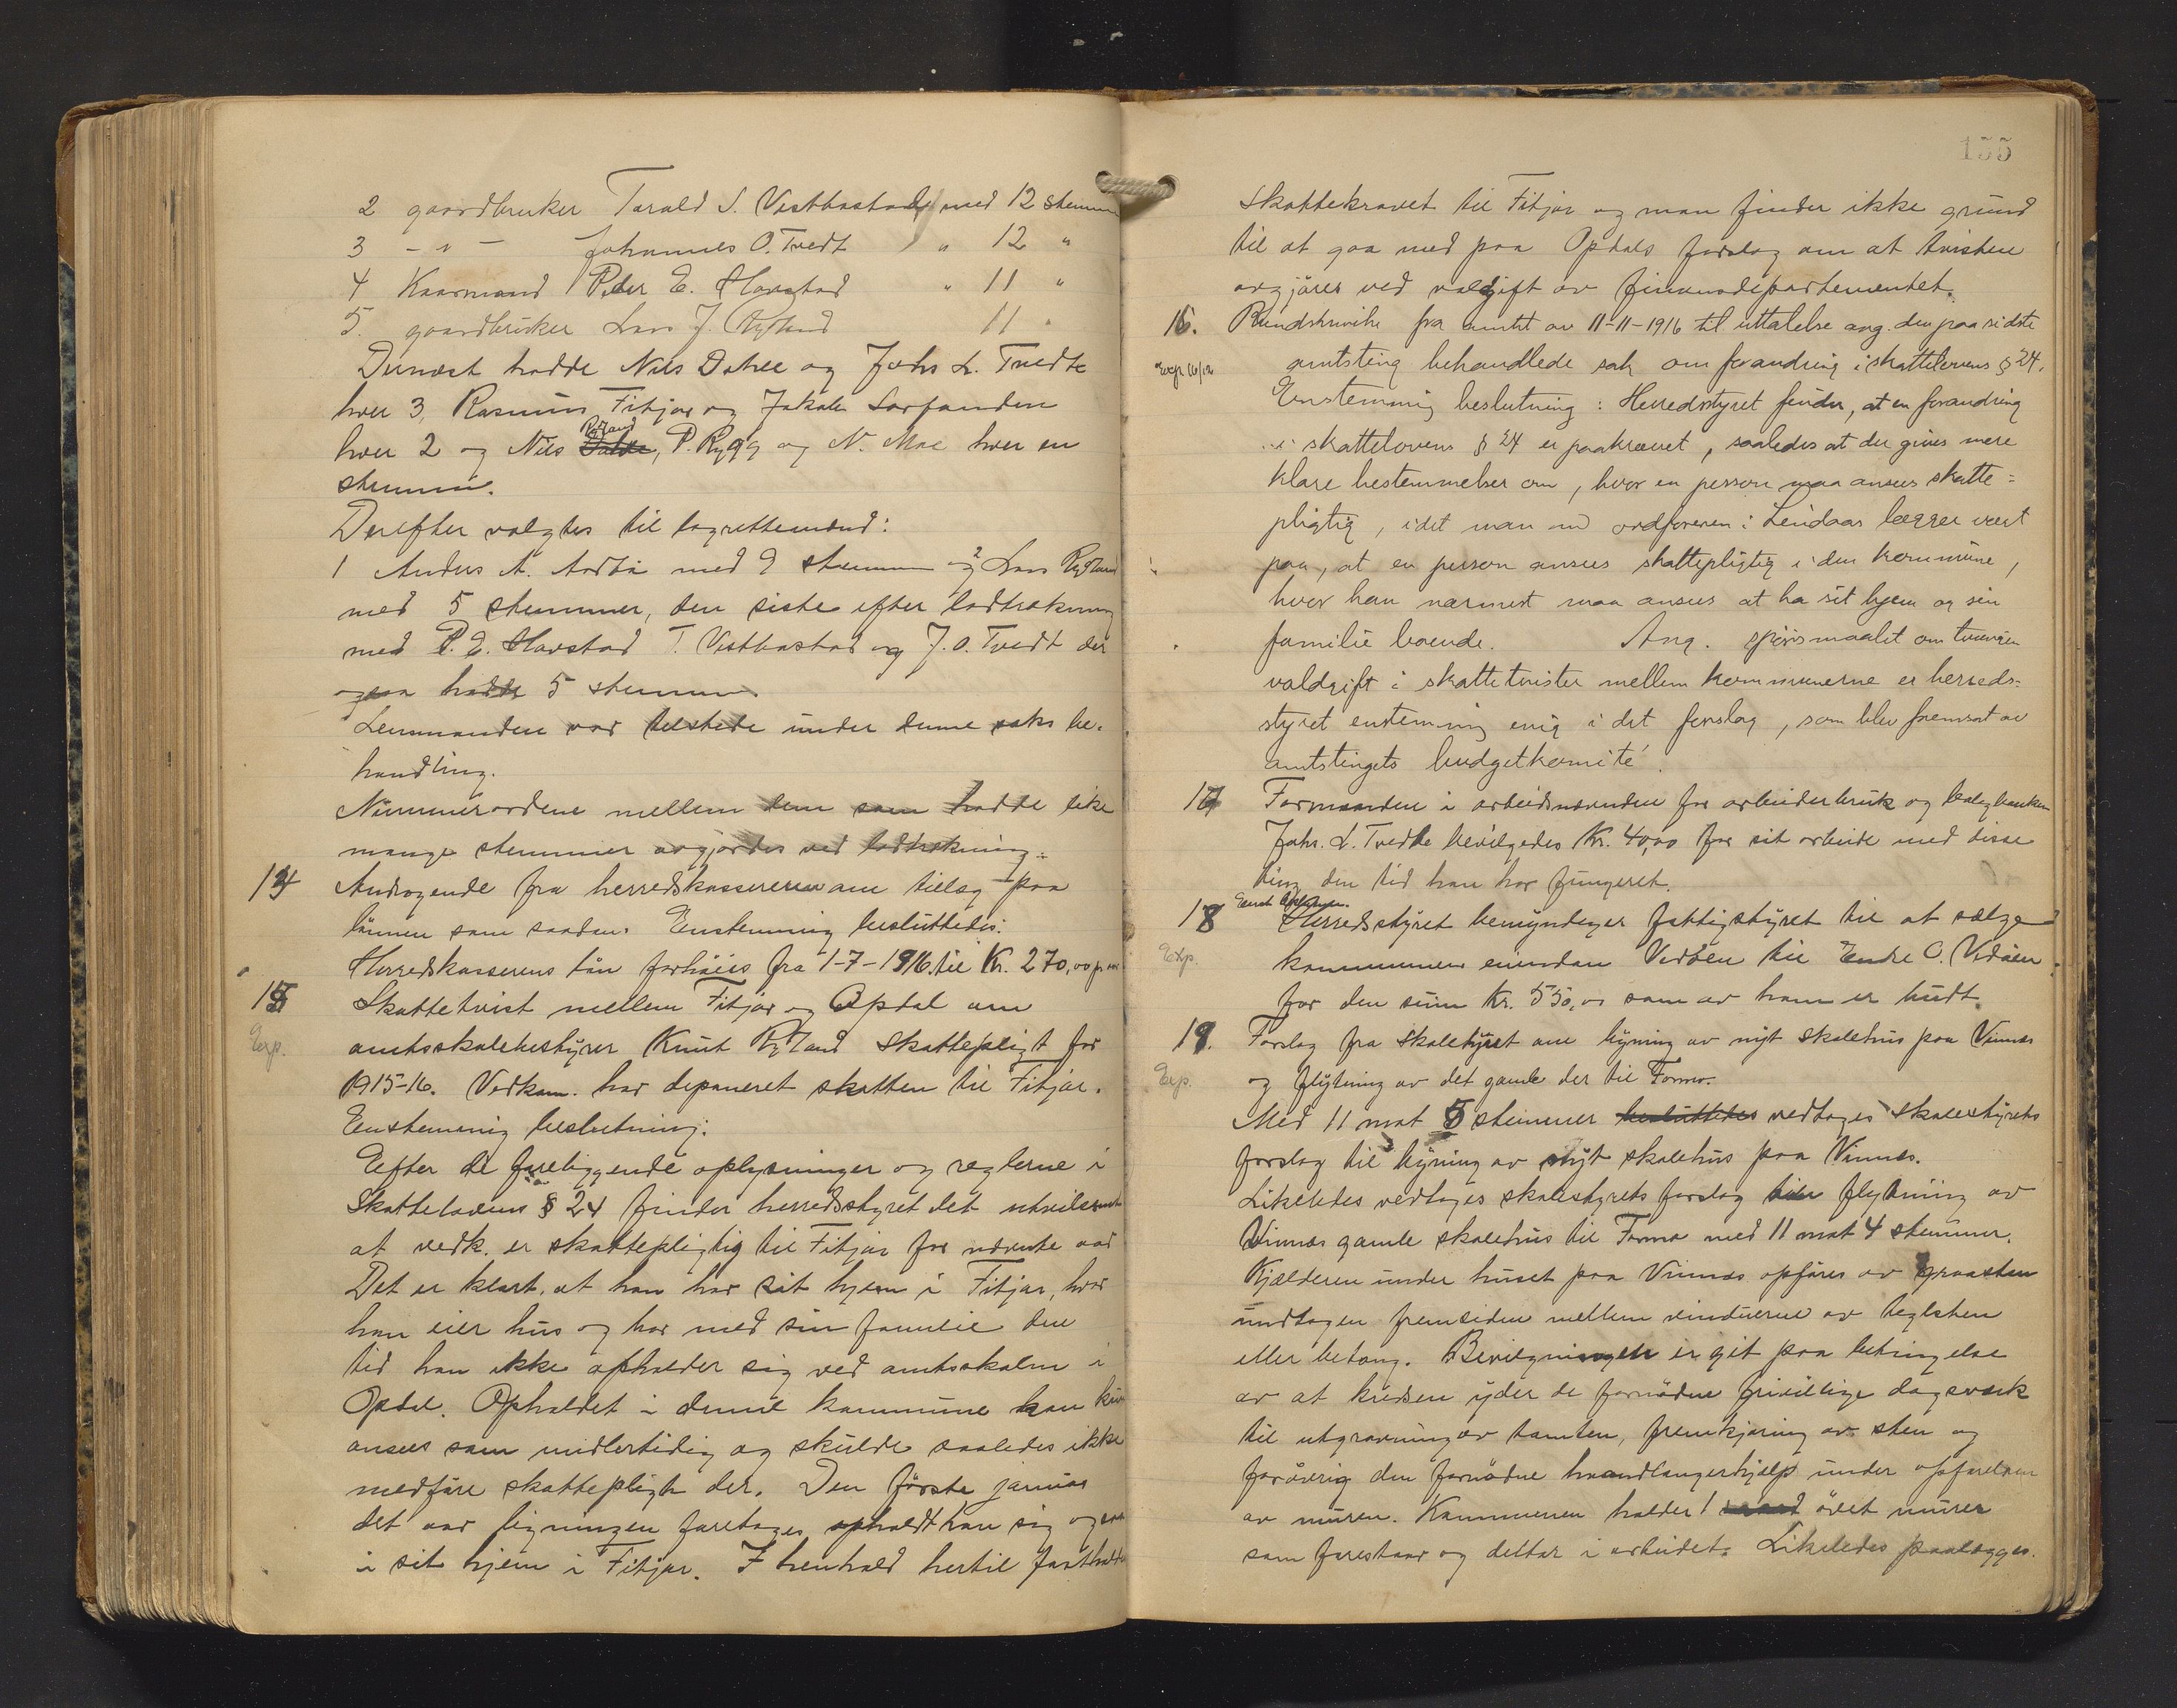 2 gaardbruker Tarald S. Vestbøstad med 12 stemmer
3 - " - Johannes O. Tvedt " 12 "
4 Kaarmand Peder E. Havstad " 11 "
5. gaardbruker Lars J. Rygland 11 "
Dernæst hadde Nils Dahle og Johs L. Tvedte
hver 3, Rasmus Fitjar og Jakob Sørfonden
hver 2 og Nils Rygland, P. Rygg og N. Moe hver en
stemme.
Derefter valgtes til lagrettemænd:
1 Anders A. med 9 stemmer og 2 Lars Rygland
med 5 stemmer, den siste efter lodtrækning
med P. E. Havstad T. Vestbøstad og J. O. Tvedt der
ogsaa hadde 5 stemmer
Lensmanden var tilstede under denne saks be-
handling.
Nummerordene mellem dem som hadde like
mange stemmer avgjordes ved lodtrækning.
14 Andragende fra herredskassereren om tillæg paa
lønnen som saadan. Enstemmig besluttedes:
Herredskasserens løn forhøies fra 1-7-1916 til Kr. 270,00 pr aar
15 Skattetvist mellem Fitjar og Opdal om
Exp. amtsskolebestyrer Knut Rygland skattepligt for
1915-16. Vedkom. har deponeret skatten til Fitjar.
Enstemmig beslutning:
Efter de foreliggende oplysninger og reglerne i
Skattelovens § 24 finder herredsstyret det utvilsomt
at vedk. er skattepligtig til Fitjar for nævnte aar
Det er klart, at han har sit hjem i Fitjar, hvor
han eier hus og bor med sin familie den
tid han ikke opholder sig ved amtsskolen i
Opdal. Opholdet i denne kommune kan kun
ansees som midlertidig og skulde saaledes ikke
medføre skattepligt der. Den første januar
det aar ligningen foretages opholdt han sig ogsaa
i sit hjem i Fitjar. I henhold hertil fastholdes
155
Skattekravet til Fitjar og man finder ikke grund
til at gaa med paa Opdals forslag om at tvisten
avgjøres ved voldgift av finansdepartementet.
16. Rundskrivelse fra amtet av 11-11-1916 til uttalelse ang. den paa sidste
Exp amtsting behandlede sak om forandring i skattelovens § 24.
Enstemmig beslutning: Herredsstyret finder, at en forandring
i skattelovens § 24 er paakrævet, saaledes at der gives mere
klare bestemmelser om, hvor en person maa ansees skatte-
pligtig, idet man med ordføreren i Lindaas lægger vægt
paa, at en person ansees skattepligtig i den kommune,
hvor han nærmest maa ansees at ha sit hjem og sin
familie boende. Ang. spørsmaalet om tvungen
voldgift i skattetvister mellem kommunerne er herreds-
styret enstemmig enig i det forslag, som blev fremsat av
amtstingets budgetkomité.
17 Formanden i arbeidsnævnden for arbeiderbruk og boligbanken
Johs. L. Tvedte bevilgedes Kr. 40,00 for sit arbeide med disse
ting den tid han har fungeret.
18 Herredsstyret bemyndiger fattigstyret til at sælge
Exp. kommunens eiendom Vidøen til Endre C. Vidøen
for den sum Kr. 550,00 som av ham er budt.
19. Forslag fra skolestyret om bygning av nyt skolehus paa Vinnes
Exp. og flytning av det gamle der til Tornø.
Med 11 mot 5 stemmer besluttedes vedtages skolestyrets
forslag til bygning av nyt skolehus paa Vinnes.
Likeledes vedtages skolestyrets forslag til flytning av
Vinnes gamle skolehus til Tornø med 11 mot 4 stemmer.
Kjælderen under huset paa Vinnes opføres av graasten
undtagen fremsiden mellem vinduerne av teglsten
eller betong. Bevilgningen er git paa betingelse
av at kredsen yder de fornødne frivillige dagsverk
til utgravning av tomten, fremkjøring av sten og
forøvrig den fornødne haandlangerhjelp under opførelsen
av muren. Kommunen holder 1 øvet murer
som forestaar og deltar i arbeidet. Likeledes paalægges